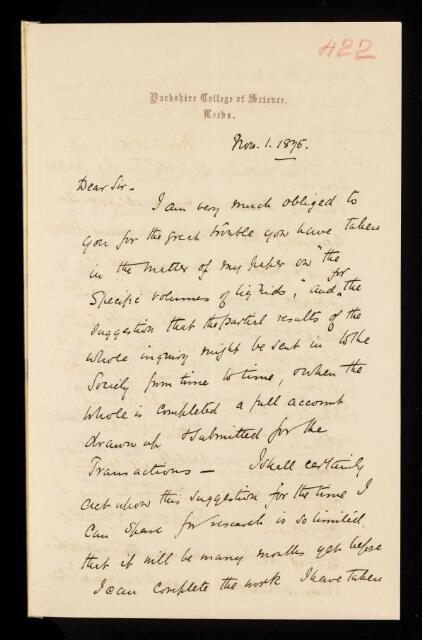 422
Yorkshire College of Science.
Leeds.
Nov. 1. 1876.
Dear Sir -
I am very much obliged to
you for the great trouble you have taken
in the matter of my paper on "the
Specific volumes of liquids," and for the
suggestion that the partial results of the
whole inquiry might be sent in to the
Society from time to time, & when the
whole is completed a full account
drawn up & submitted for the
Transactions — I shall certainly
act upon this suggestion for the time I
can spare for research is so limited
that it will be many months yet before
I can complete the work I have taken